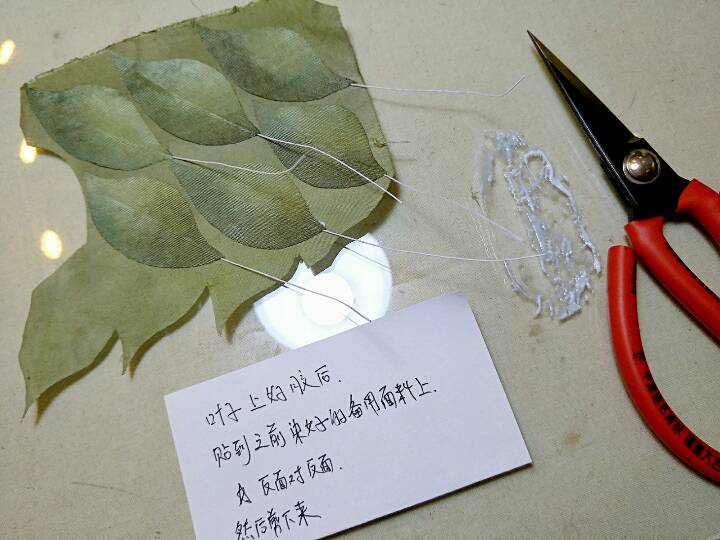 叶子上好胶后.
贴到之前染好的备用面料上.
反面对反面.
然后剪下来